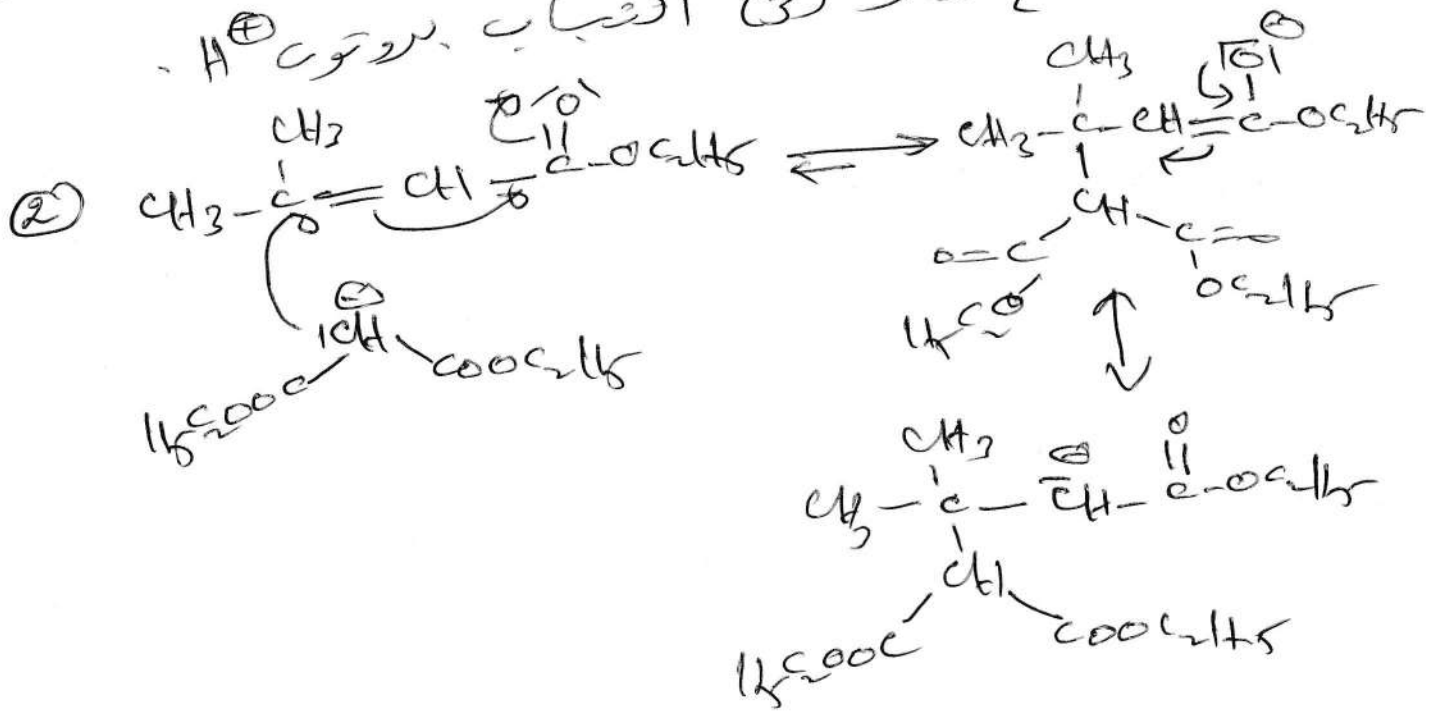 اكتساب بروتون H⊕ .
CH3 O
② CH3-C=CH-C-OC2H5 ⇌ CH3-C-CH=C-OC2H5
CH3 |O|⊖
⊖
|CH
H5C2OOC COOC2H5
CH
O=C C=O
H5C2O OC2H5
CH3 ⊖ O
CH3-C-CH-C-OC2H5
CH
H5C2OOC COOC2H5